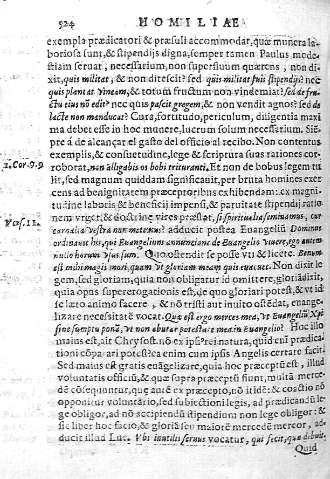 524 HOMILIAE
exempla prædicatori & præsuli accommodat, quæ munera la-
boriosa sunt, & stipendijs digna, semper tamen Paulus mode-
stiam seruat, necessarium, non superfluum quærens, non di-
xit, quis militat, & non ditescit? sed quis militat suis stipendijs? nec
quis plantat Vineam, & totum fructum non vindemiat? sed de fru-
ctu eius nō edit? nec quis pascit gregem, & non vendit agnos? sed de
lacte non manducat? Cura, fortitudo, periculum, diligentia maxi
ma debet esse in hoc munere, lucrum solum necessarium. Siem-
pre à de alcançar el gasto del officio al recibo. Non contentus
exemplis, & consuetudine, lege & scriptura suas rationes cor-
1. Cor. 9.9 roborat, non alligabis os boui trituranti, Et non de bobus legem tu
lit, sed magnum quiddam significauit, per bruta homines exer
cens ad benignitatem præceptoribus exhibendam: ex magni-
tudine laboris & beneficij impensi, & paruitate stipendij ratio
nem vrget, & doctrinæ vires præstat, si spiritualia seminamus, cur
Vers. 11. carnalia vestra non metemus? adducit postea Euangeliū Dominus
ordinauit his, qui Euangelium annuntiant de Euangelio viuere, ego autem
nullo horum vsus sum. Quo ostendit se posse vti & licere. Bonum
est mihi magis mori, quam vt gloriam meam quis euacuet. Non dixit le
gem, sed gloriam, quia non obligabat id omittere, gloria dixit,
quia opus supererogationis est, de quo gloriari potest, & vt id
se læto animo facere, & nō tristi aut inuito ostēdat, euange-
lizare necessitatem vocat. Quæ est ergo merces mea, vt Euangeliū
sine sumptu ponā, vt non abutar potestate mea in Euangelio? Hoc illo
maius est, ait Chrysost. nō ex ipsa rei natura, quid enī prædica-
tioni cōparari potest? ea enim cum ipsis Angelis certare facit.
Sed maius est gratis euāgelizare, quia hoc præceptū est, illud
voluntatis officiū, & quæ supra præceptū fiunt, multā merce-
dē cōsequuntur, quæ autē ex præcepto, nō itidē: & coactio nō
opponitur voluntario, sed subiectioni legis, ad prædicandū le-
ge obligor, ad nō accipiendū stipendium non lege obligor: &
sic liber hoc facio, & gloriā seu maiorē mercedē mereor, ad-
ducit illud Luc. Vbi inutilis seruus vocatur, qui fecit, quæ debuit.
Quid